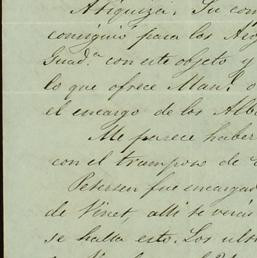 Atiquiza. Su com
consiguió para los Neg
Guad.ª con este objeto y
lo que ofrece Man.l o
el encargo de los Alb
Me parece haber
con el tramposo de
Petersen fue encargad
de Vinet, alli se verás
se halla esto. Los ulti